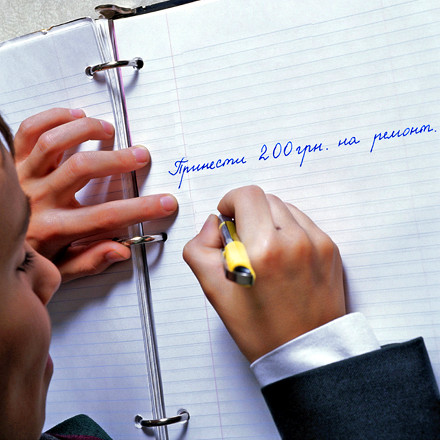 Принести 200грн. на ремонт.